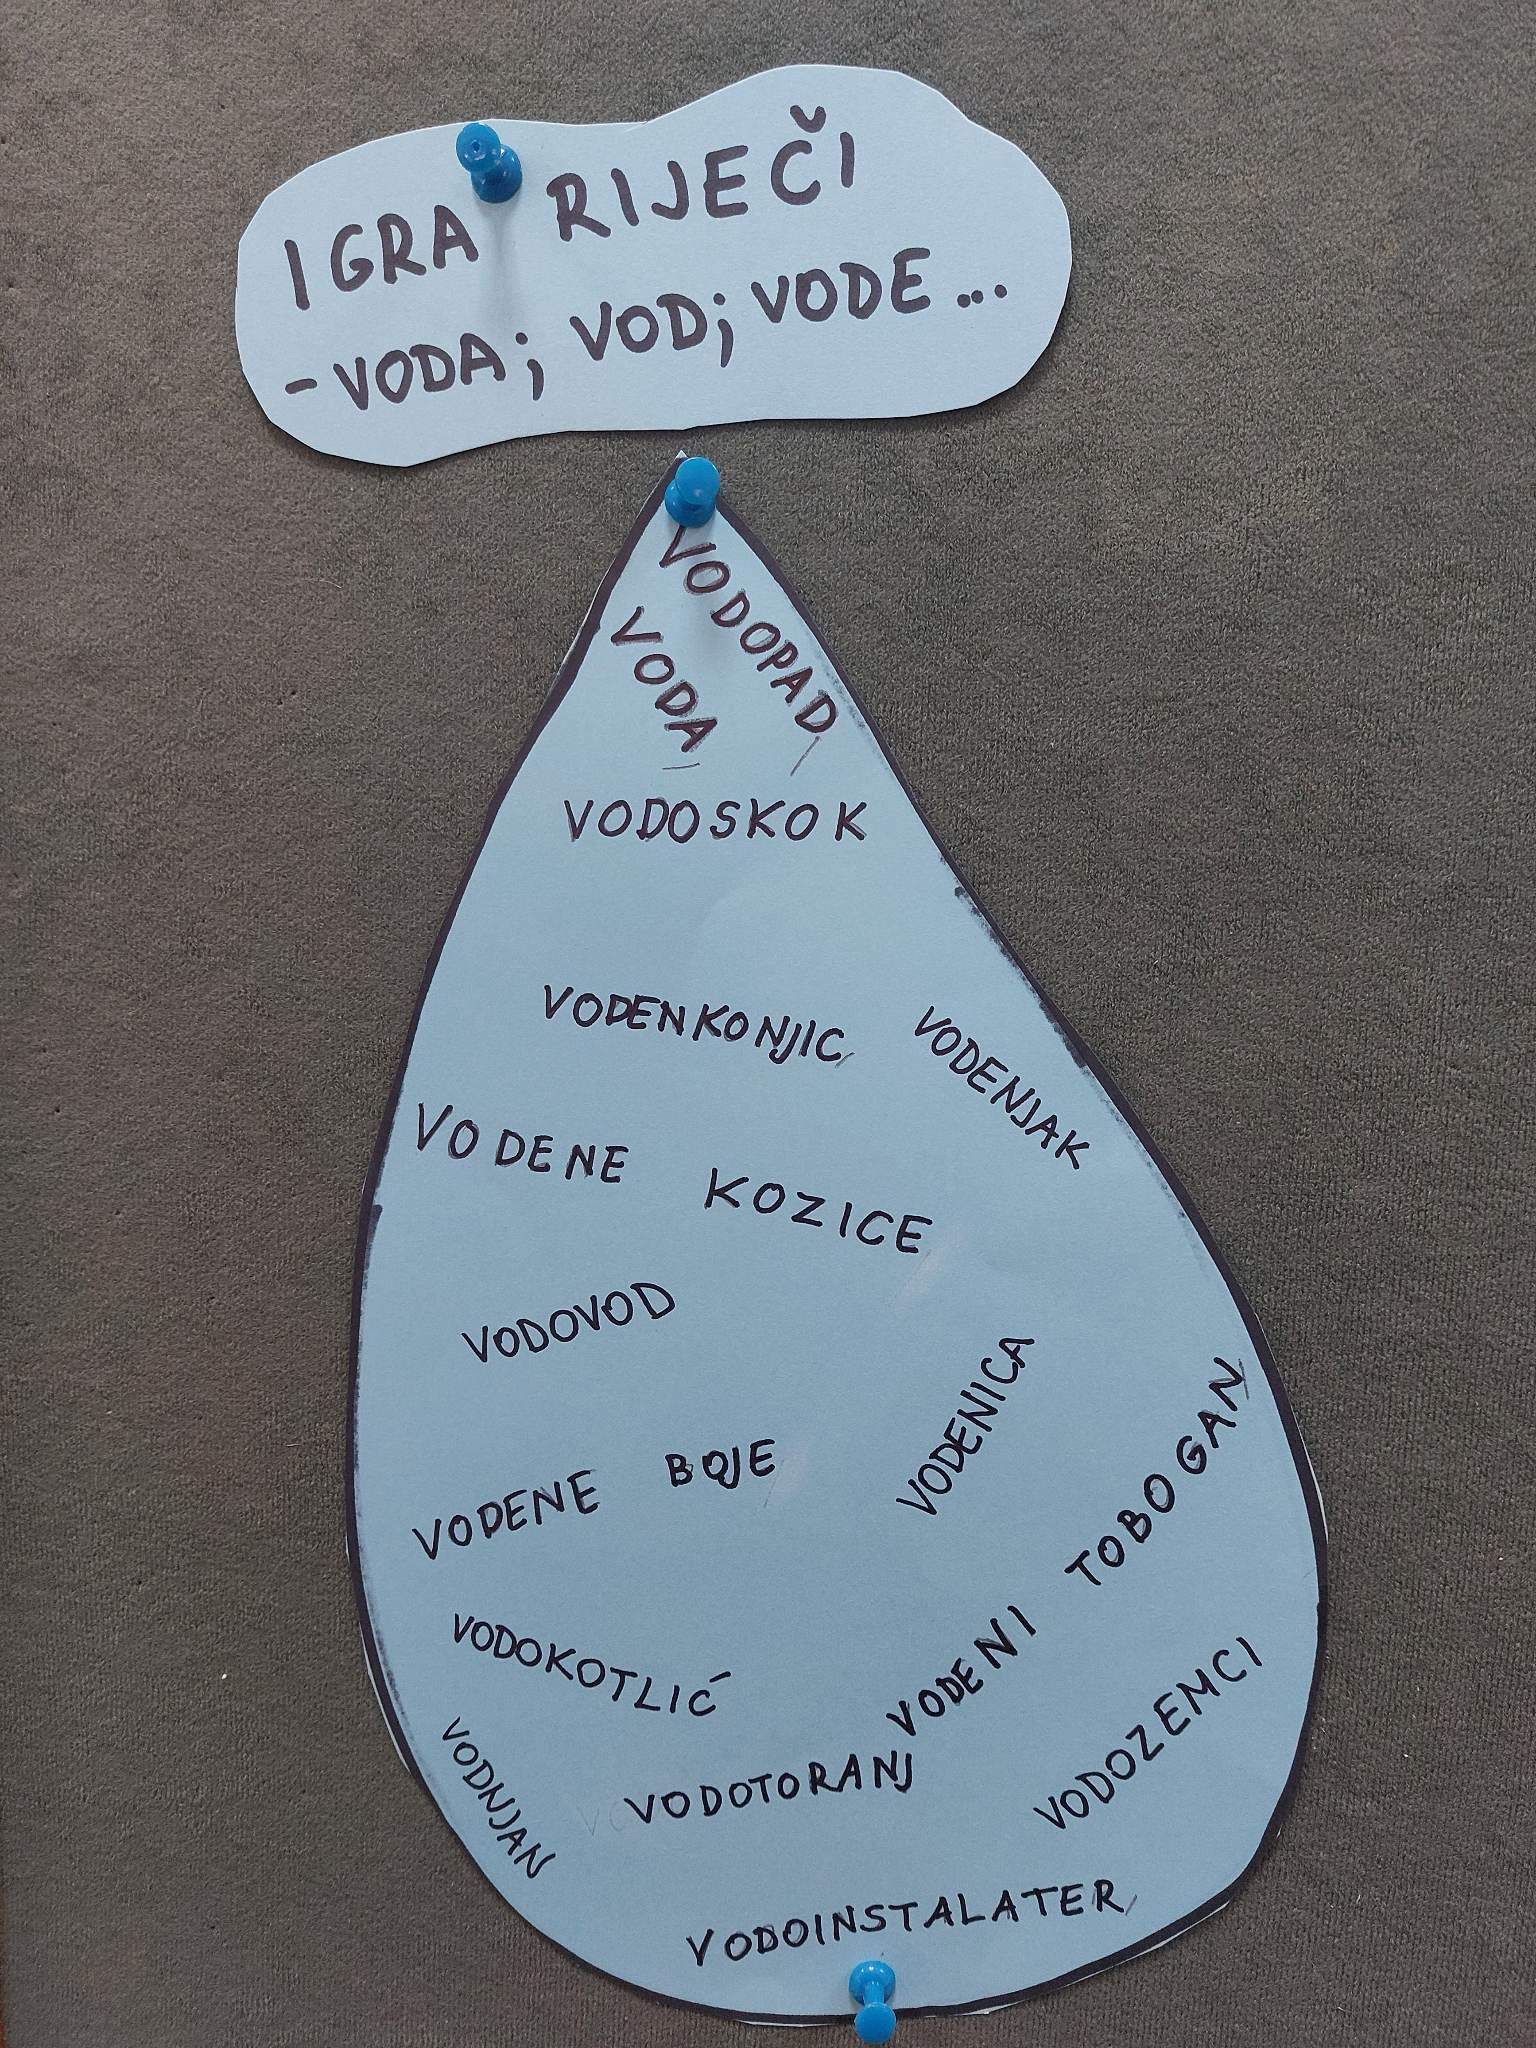 IGRA RIJEČI
- VODA; VOD; VODE...
VODOPAD
VODA
VODOSKOK
VODENKONJIC
VODENJAK
VODENE KOZICE
VODOVOD
VODENICA
VODENE BOJE
VODENI TOBOGAN
VODOKOTLIĆ
VODNJAN
VODOTORANJ
VODOZEMCI
VODOINSTALATER